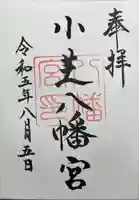 奉拝
小芝八幡宮
令和五年八月五日